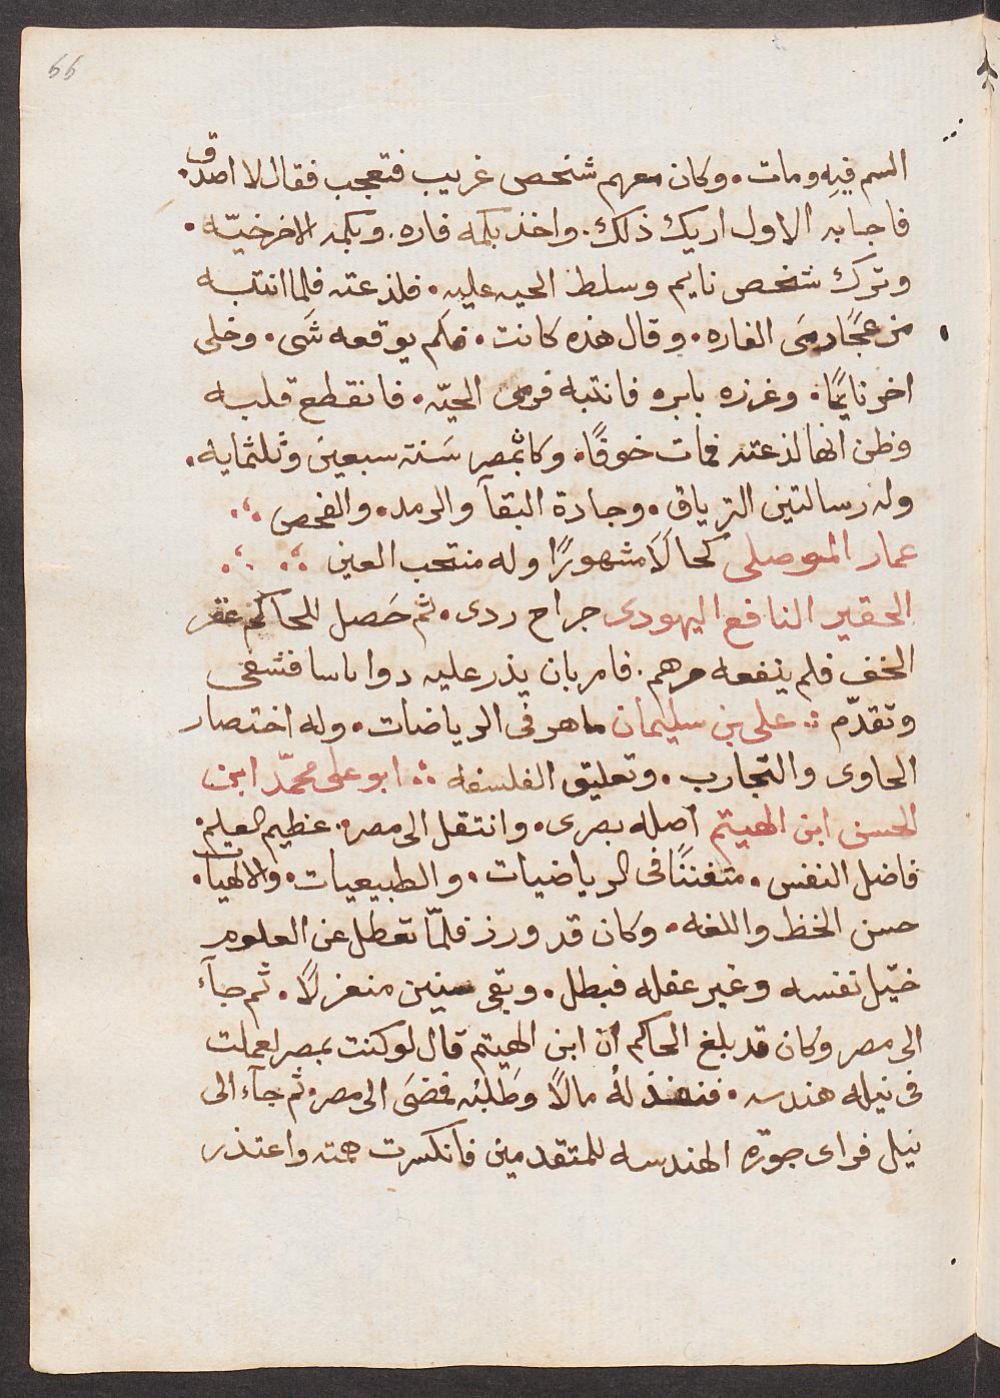 66
السم فيه ومات. وكان معهم شخص غريب فتعجب فقال لا اصدق.
فاجابه الاول اريك ذلك. واخذ بكمه فاره. وبكمه الاخر حيّه.
وترك شخص نايم وسلط الحيه عليه. فلذعته فلما انتبه
منزعجًا رمَى الفاره. وقال هذه كانت. فلم يوقعه شَى. وخلى
اخر نايمًا. وغرزه بابره فانتبه فرمى الحيّه. فانقطع قلبه
وظن انها لذعته فمات خوفًا. وكا بمصر سَنة سبعين وثلثمايه.
وله رسالتين الترياق. وجادة البقآ والرمد. والفحص
عمار الموصلى كحالاً مشهورًا وله منتحب العين
الحقير النافع اليهودى جراح ردى. ثم حَصل للحاكم عقر
الخف فلم ينفعه مرهم. فامر بان يذر عليه دوا ياسا فشفى
وتقدّم علي بن سليمان ماهر فى الرياضات. وله اختصار
الحاوى والتجارب. وتعليق الفلسفه ابو على محمّد ابن
الحسن ابن الهيتم اصله بصرى. وانتقل الى مصر. عظيم العلم.
فاضل النفس. متفننًا فى الرياضيات. والطبيعيات. والالهيات.
حسن الخظ واللغه. وكان قد ورز فلمّا تعطل عن العلوم
خيّل نفسه وغير عقله فبطل. وبقى سنين منعزلاً. ثم جآء
الى مصر وكان قد بلغ الحاكم ان ابن الهيتم قال لو كنت بمصر لعملت
فى نيله هندسه. فنفذ لهُ مالاً وطَلبُه فمضَى الى مصر. ثم جآء الى
نيل فراى جوّره الهندسه للمتقدمين فانكسرت همته واعتذر